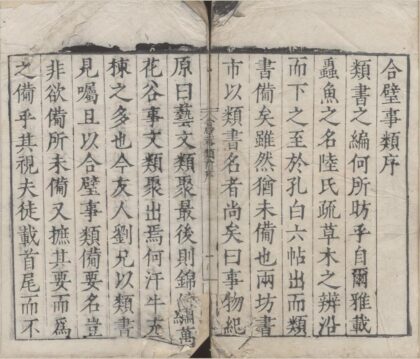 合璧事類序
類書之編何所昉乎自爾雅載
蟲魚之名陸氏疏草木之辨沿
而下之至於孔白六帖出而類
書備矣雖然猶未備也兩坊書
市以類書名者尚矣曰事物紀
原曰藝文類聚最後則錦繡萬
花谷事文類聚出焉何汗牛充
棟之多也今友人劉兄以類書
見囑且以合璧事類備要名豈
非欲備所未備又摭其要而爲
之備乎其視夫徒載首尾而不